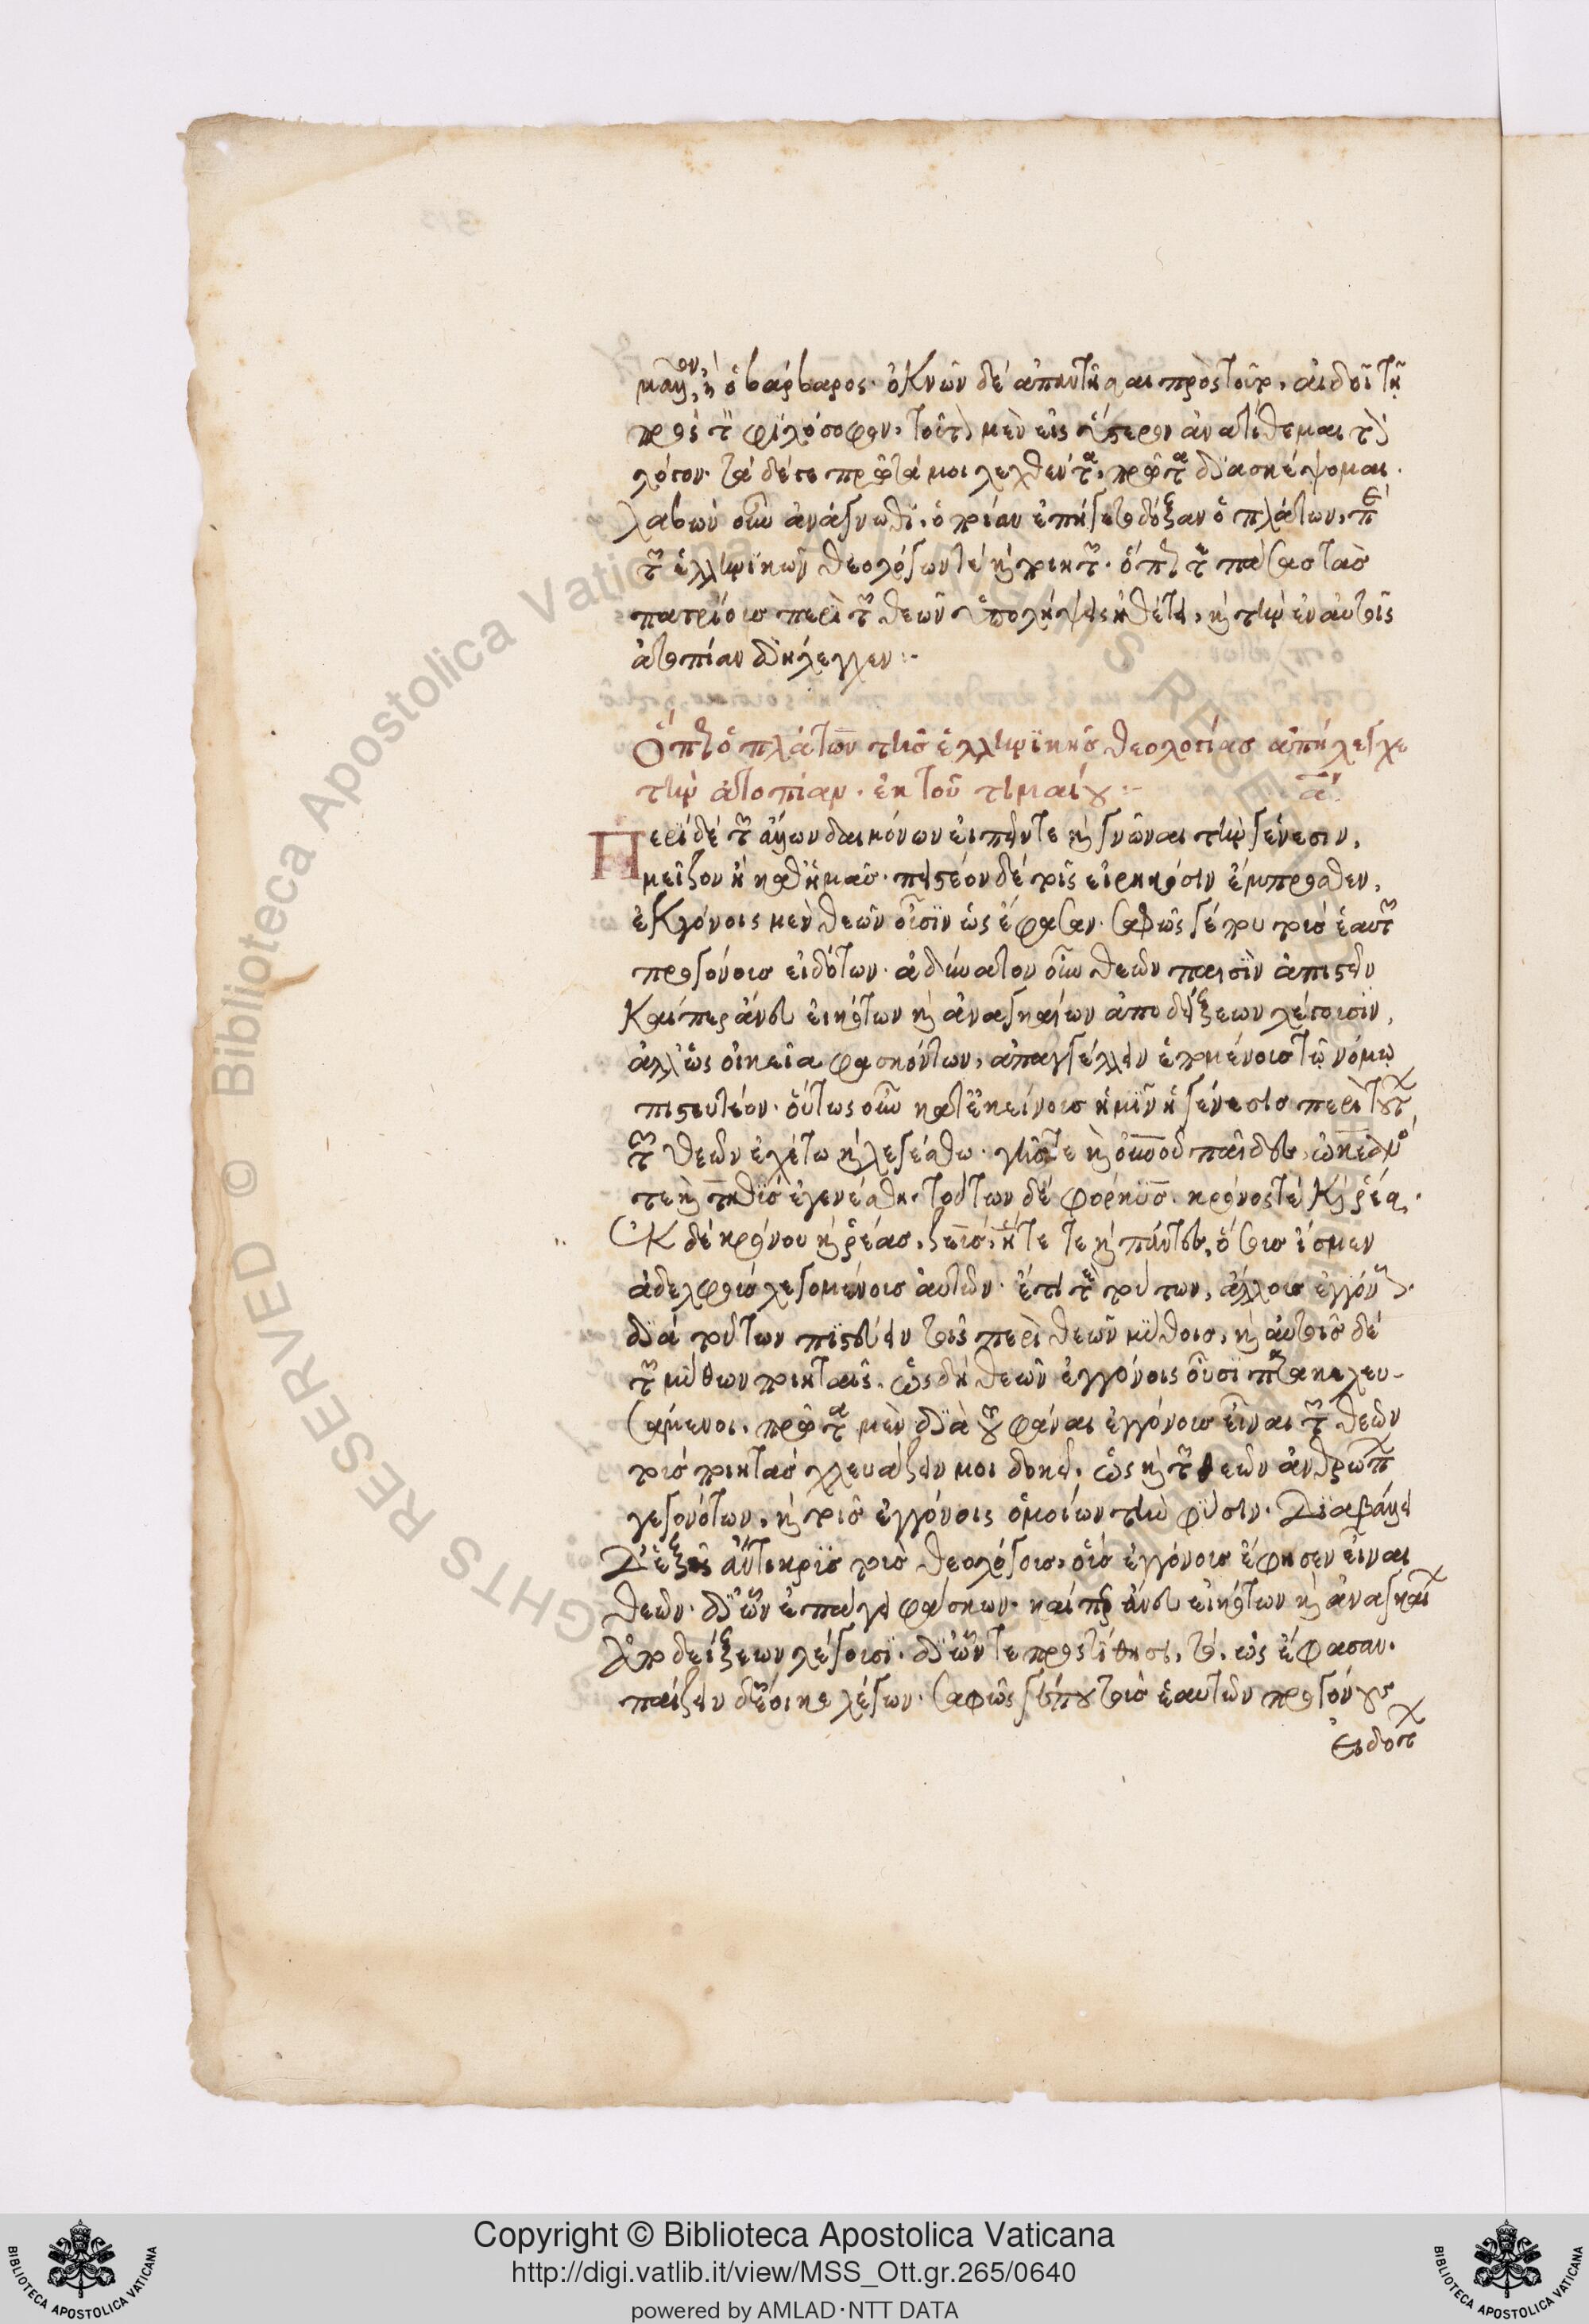 μᾶλλον, ἢ ὁ βάρβαρος. ὀκνῶν δὲ ἀπαντῆσαι πρὸς τοῦτο, αἰδοῖ τῇ
πρὸς τὸν φιλόσοφον, τοῦτο μὲν εἰς ὕστερον ἀνατίθεμαι τὸν
λόγον. τὰ δέ γε πρῶτά μοι λεχθέντα, πρῶτα διασκέψομαι.
λαβὼν οὖν ἀνάγνωθι, ὁποίαν ἐπήγετο δόξαν ὁ πλάτων, περὶ
τῶν ἑλληνικῶν θεολόγων τὲ καὶ ποιητῶν. ὅπως τὲ πάσας τὰς
πατρίους περὶ τῶν θεῶν ὑπολήψεις ἠθέτει, καὶ τὴν ἐν αὐτοῖς
ἀτοπίαν διήλεγχεν:-
Ὅπως ὁ πλάτων τῆς ἑλληνικῆς θεολογίας ἀπήλεγχε
τὴν ἀτοπίαν. ἐκ τοῦ τιμαίου:- α
Περὶ δὲ τῶν ἄλλων δαιμόνων εἰπεῖν τε καὶ γνῶναι τὴν γένεσιν,
μεῖζον ἢ καθ' ἡμᾶς. πειστέον δὲ τοῖς εἰρηκόσιν ἔμπροσθεν,
ἐκγόνοις μὲν θεῶν οὖσιν ὡς ἔφασαν. σαφῶς γέ που τοὺς ἑαυτῶν
προγόνους εἰδότων. ἀδύνατον οὖν θεῶν παισὶν ἀπιστεῖν
καίπερ ἄνευ εἰκότων καὶ ἀναγκαίων ἀποδείξεων λέγουσιν,
ἀλλ' ὡς οἰκεῖα φασκόντων, ἀπαγγέλλειν ἑπομένους τῷ νόμῳ
πιστευτέον. οὕτως οὖν κατ' ἐκείνους ἡμῖν ἡ γένεσις περὶ τούτων
τῶν θεῶν ἐχέτω καὶ λεγέσθω. γῆς τε καὶ οὐρανοῦ παῖδες, ὠκεανός
τε καὶ τηθὺς ἐγενέσθην. τούτων δὲ φόρκυς. κρόνος τὲ καὶ ῥέα,
Ἐκ δὲ κρόνου καὶ ῥέας, ζεύς, ἥρα τε καὶ πάντες, ὅσους ἴσμεν
ἀδελφοὺς λεγομένους αὐτῶν. ἔτι τε τούτων, ἄλλους ἐγγόνους.
διὰ τούτων πιστεύειν τοῖς περὶ θεῶν μύθοις, καὶ αὐτοῖς δὲ
τῶν μύθων ποιηταῖς, ὡς δὴ θεῶν ἐγγόνοις οὖσι παρακελευ-
σάμενοι. πρῶτα μὲν διὰ τοῦ φάναι ἐγγόνους εἶναι τῶν θεῶν
τοὺς ποιητὰς χλευάζειν μοι δοκεῖ. ὡς καὶ τῶν θεῶν ἀνθρώπων
γεγονότων, καὶ τοῖς ἐγγόνοις ὁμοίων τὴν φύσιν. Διαβάλλει
Δ' ἑξῆς ἄντικρυς τοὺς θεολόγους, οὓς ἐγγόνους ἔφησεν εἶναι
θεῶν. δι' ὧν ἐπάγει φάσκων. καίπερ ἄνευ εἰκότων καὶ ἀναγκαίων
ἀποδείξεων λέγουσι. δι' ὧν τε προστίθησι, τὸ, ὡς ἔφασαν.
παίζειν δὲ ἔοικε λέγων. σαφῶς γέ που τοὺς ἑαυτῶν προγόνους
εἰδότων
Copyright © Biblioteca Apostolica Vaticana
http://digi.vatlib.it/view/MSS_Ott.gr.265/0640
powered by AMLAD·NTT DATA